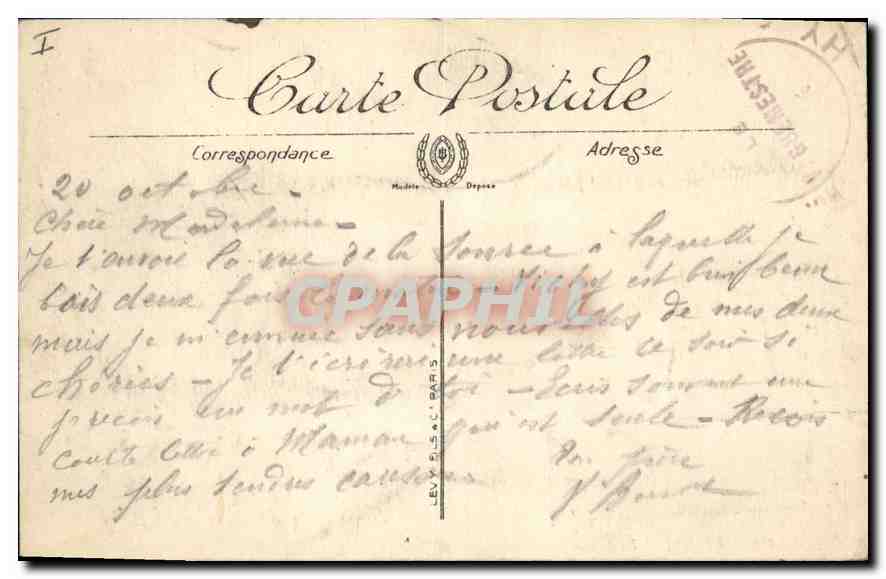 I
Carte Postale
Correspondance
Adresse
Modèle Déposé
20 octobre -
Chère Madeleine -
Je t'envoie la vue de la source à laquelle je
bois deux fois - Vichy est bien beau
mais je m'ennuie sans nouvelles de mes deux
chéries - Je t'écrirai une lettre ce soir si
je reçois un mot de toi - Ecris souvent une
courte lettre à Maman qui est seule - Reçois
mes plus tendres caresses
Ton père
LEVY FILS & Cie PARIS
CPAPHIL